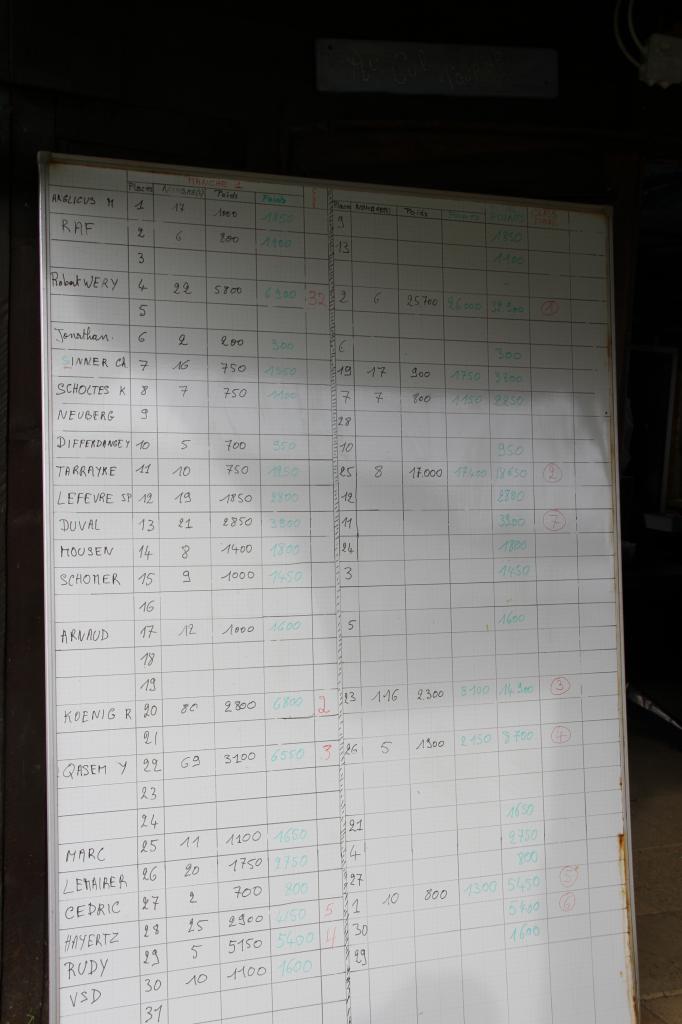 MANCHE 1
Places NOMBRE(N) Poids Points Places NOMBRE(N) Poids Points POINTS
ANGLICUS M 1 17 1000 1850 9 1850
RAF 2 6 800 1100 13 1100
3
Robert WERY 4 22 5800 6900 2 6 25700 26000 32.900 1
5
Jonathan. 6 2 200 300 6 300
SINNER Ch 7 16 750 19 17 900 1750
SCHOLTES K 8 7 750 1100 7 7 800 1150 2250
NEUBERG 9 28
DIFFERDANGE Y 10 5 700 950 10 950
TARRAYRE 11 10 750 1250 25 8 17.000 17400 18650 2
LEFEVRE SP 12 19 1850 2800 12 2800
DUVAL 13 21 2850 3900 11 3900 7
MOUSEN 14 8 1400 1800 24 1800
SCHOMER 15 9 1000 1450 3 1450
16
ARNAUD 17 12 1000 1600 5 1600
18
19
KOENIG R 20 80 2800 6800 2 23 116 2300 8100 14.900 3
21
QASEM Y 22 69 3100 6550 3 26 5 1900 2150 8700 4
23
24
MARC 25 11 1100 1650 21 1650
LEMAIRER 26 20 1750 2750 4 2750
CEDRIC 27 2 700 800 27 800
HAYERTZ 28 25 2900 4150 5 1 10 800 1300 5450 5
RUDY 29 5 5150 5400 4 30 5400 6
VSD 30 10 1100 1600 29 1600
31